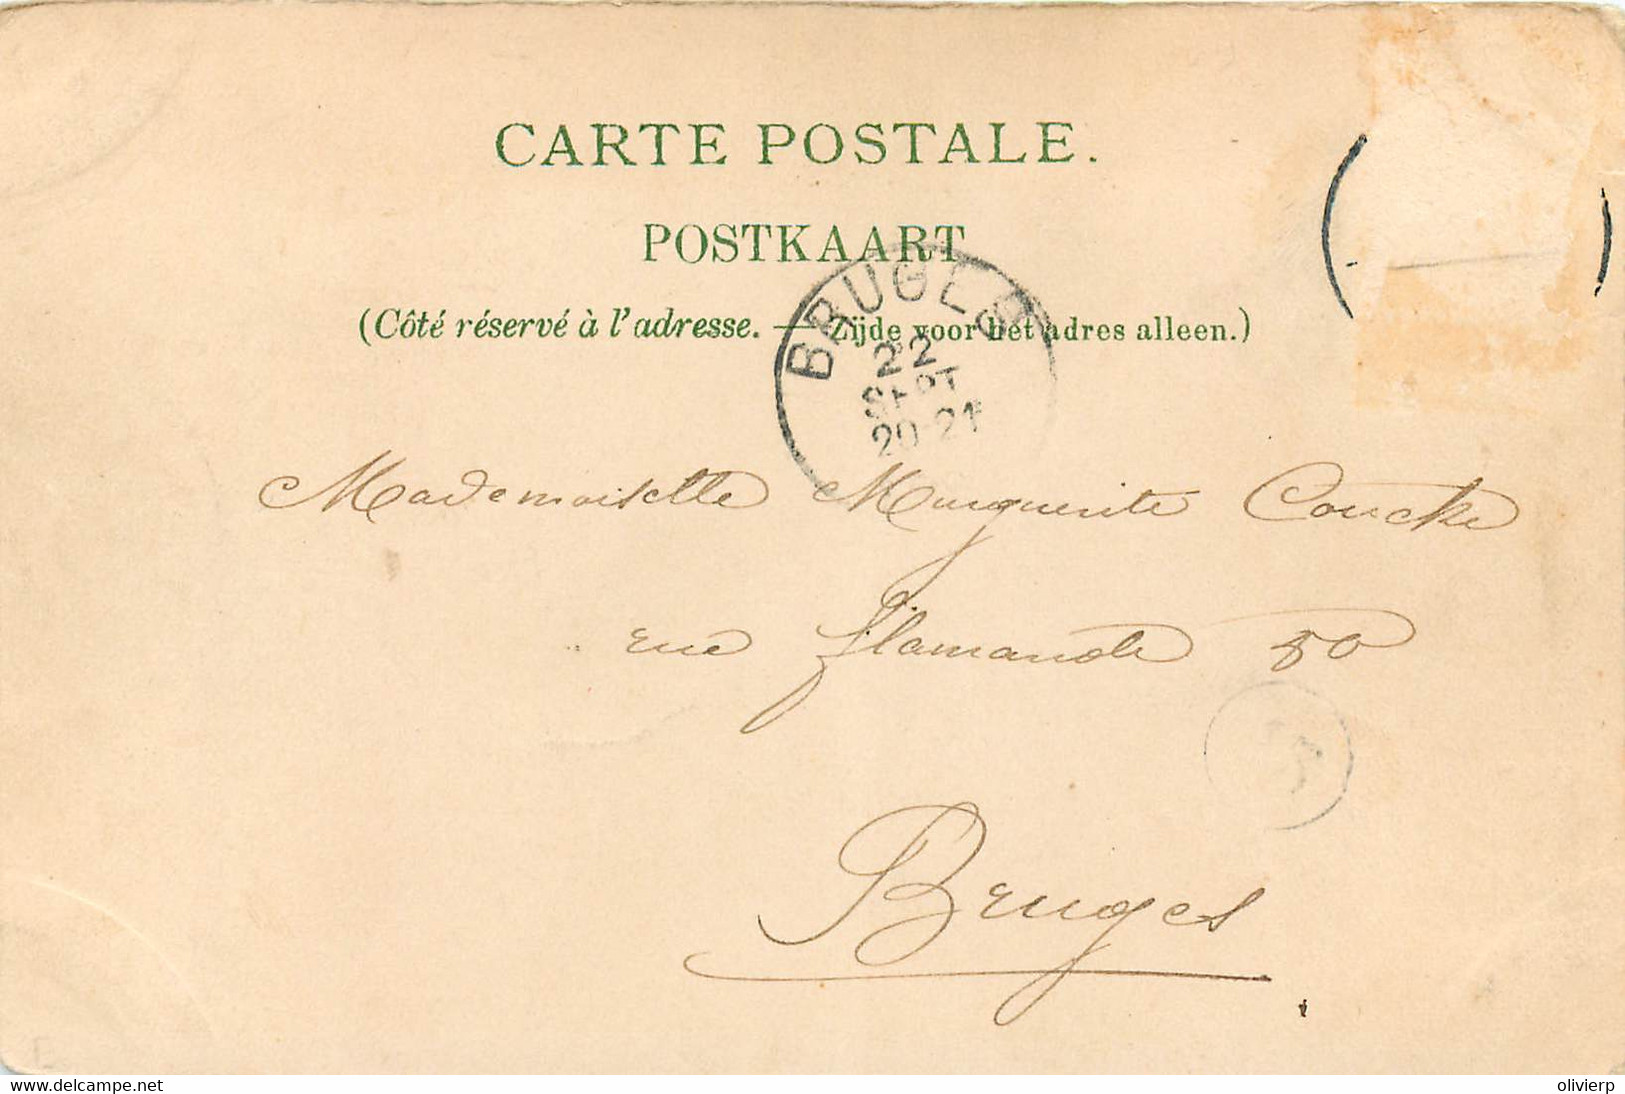 CARTE POSTALE.
POSTKAART
(Côté réservé à l'adresse. — Zijde voor het adres alleen.)
BRUGES
22
SEPT
20-21
Mademoiselle Marguerite Coucke
rue flamande 80
Bruges
delcampe.net
olivierp